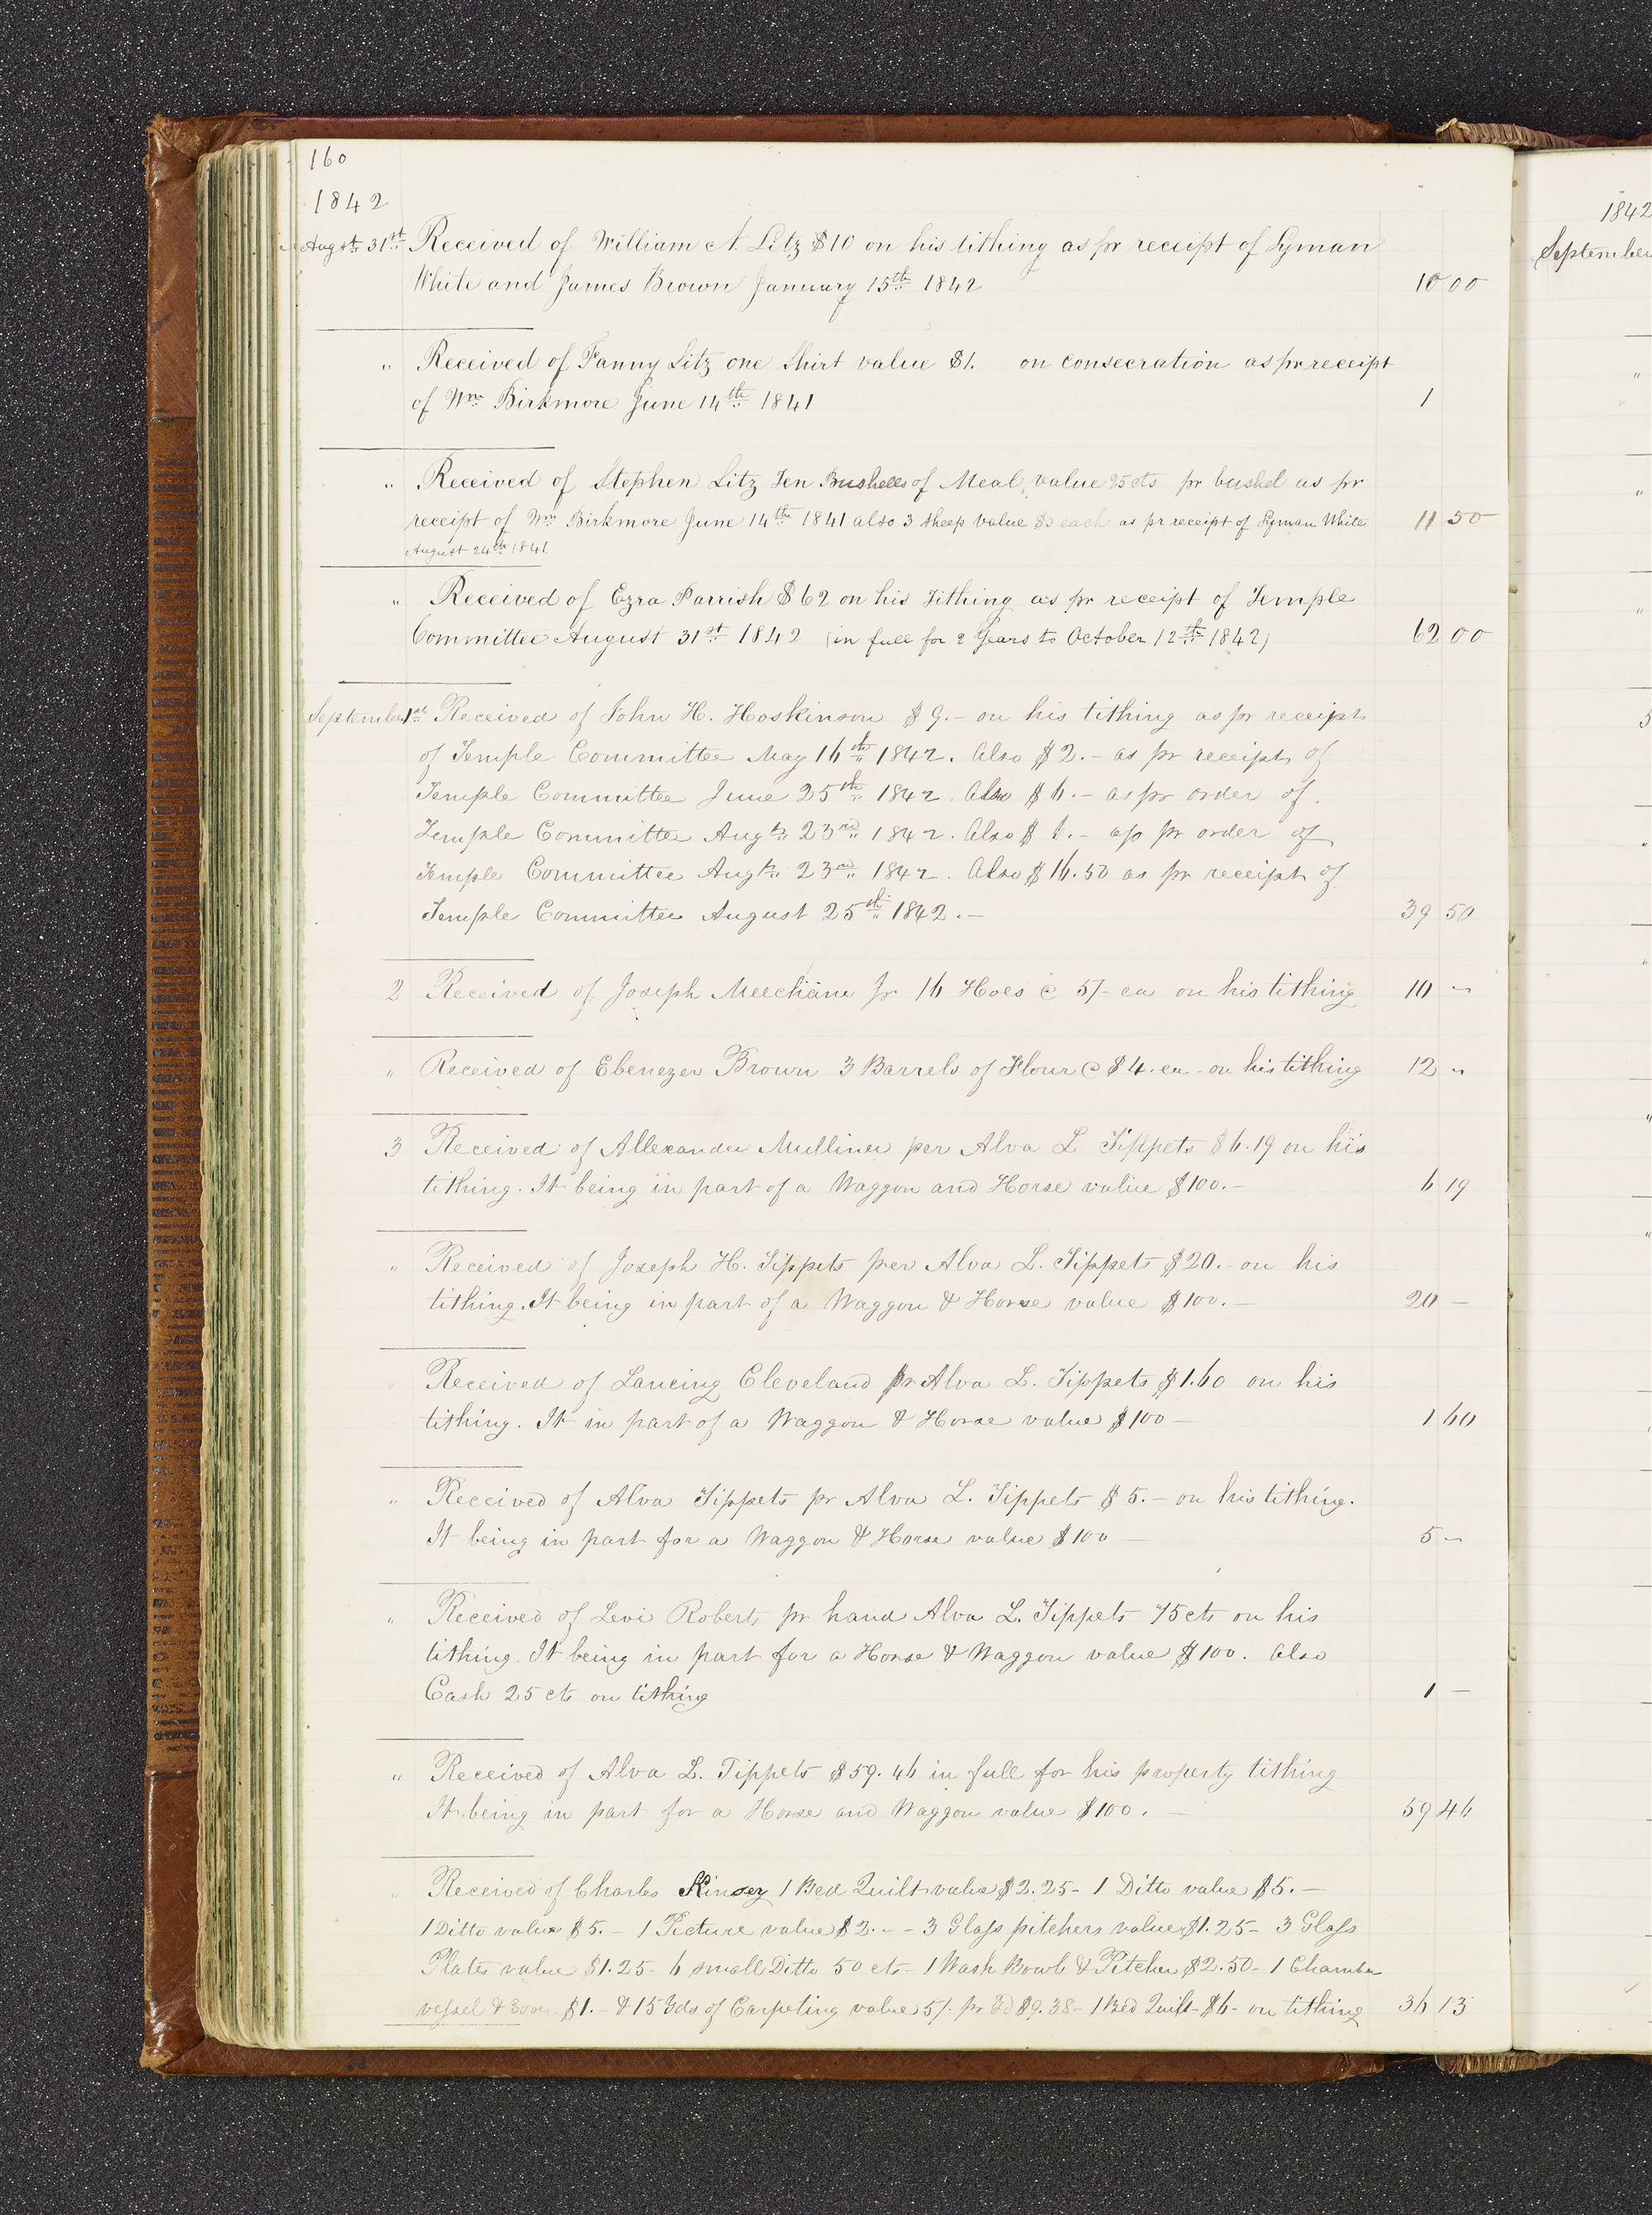 160
1842
Augst. 31st. Received of William A. Litz $10 on his tithing as pr receipt of Lyman
White and James Brown January 15th. 1842 10 00
" Received of Fanny Litz one Shirt value $1. on consecration as pr receipt
of Wm. Birkmore June 14th. 1841 1
" Received of Stephen Litz Ten Bushells of Meal, value 25cts pr bushel as pr
receipt of Wm. Birkmore June 14th. 1841 also 3 sheep value $3 each as pr receipt of Lyman White 11 50
August 24th 1841.
" Received of Ezra Parrish $62 on his Tithing as pr receipt of Temple
Committee August 31st. 1842 (in full for 2 Years to October 12th. 1842) 62 00
September 1st. Received of John H. Hoskinson $9.- on his tithing as pr receipt
of Temple Committee May 16th. 1842. Also $2.- as pr receipt of
Temple Committee June 25th. 1842. Also $6.- as pr order of
Temple Committee Augt. 23rd. 1842. Also $ .- as pr order of
Temple Committee Augt. 23rd. 1842. Also $16.50 as pr receipt of
Temple Committee August 25th. 1842.- 39 50
2 Received of Joseph Jr 16 Hoes @ 5/- ea on his tithing 10 "
" Received of Ebenezer Brown 3 Barrels of Flour @ $4. ea - on his tithing 12 "
3 Received of Allexander Mulliner per Alva L Tippets $6.19 on his
tithing. It being in part of a Waggon and Horse value $100.- 6 19
" Received of Joseph H. Tippets per Alva L. Tippets $20.- on his
tithing. It being in part of a Waggon & Horse value $100.- 20 -
Received of Lancing Cleveland pr Alva L. Tippets $1.60 on his
tithing. It in part of a Waggon & Horse value $100 - 1 60
" Received of Alva Tippets pr Alva L. Tippets $5.- on his tithing.
It being in part for a Waggon & Horse value $100 - 5 "
" Received of Levi Roberts pr hand Alva L. Tippets 75 cts on his
tithing. It being in part for a Horse & Waggon value $100. Also
Cash 25 cts on tithing 1 -
" Received of Alva L. Tippets $59.46 in full for his property tithing
It being in part for a Horse and Waggon value $100. - 59 46
" Received of Charles Kinsey 1 Bed Quilt value $2.25 - 1 Ditto value $5.-
1 Ditto value $5.- 1 Picture value $2.- - 3 Glass pitchers value $1.25 - 3 Glass
Plates value $1.25 - 6 small Ditto 50 cts - 1 Wash Bowl & Pitcher $2.50 - 1 Chamber
vessel & Cover $1.- & 15 Yds of Carpeting value 5/- pr Yd $9.38 - 1 Bed Quilt $6 - on tithing 36 13
1842
September